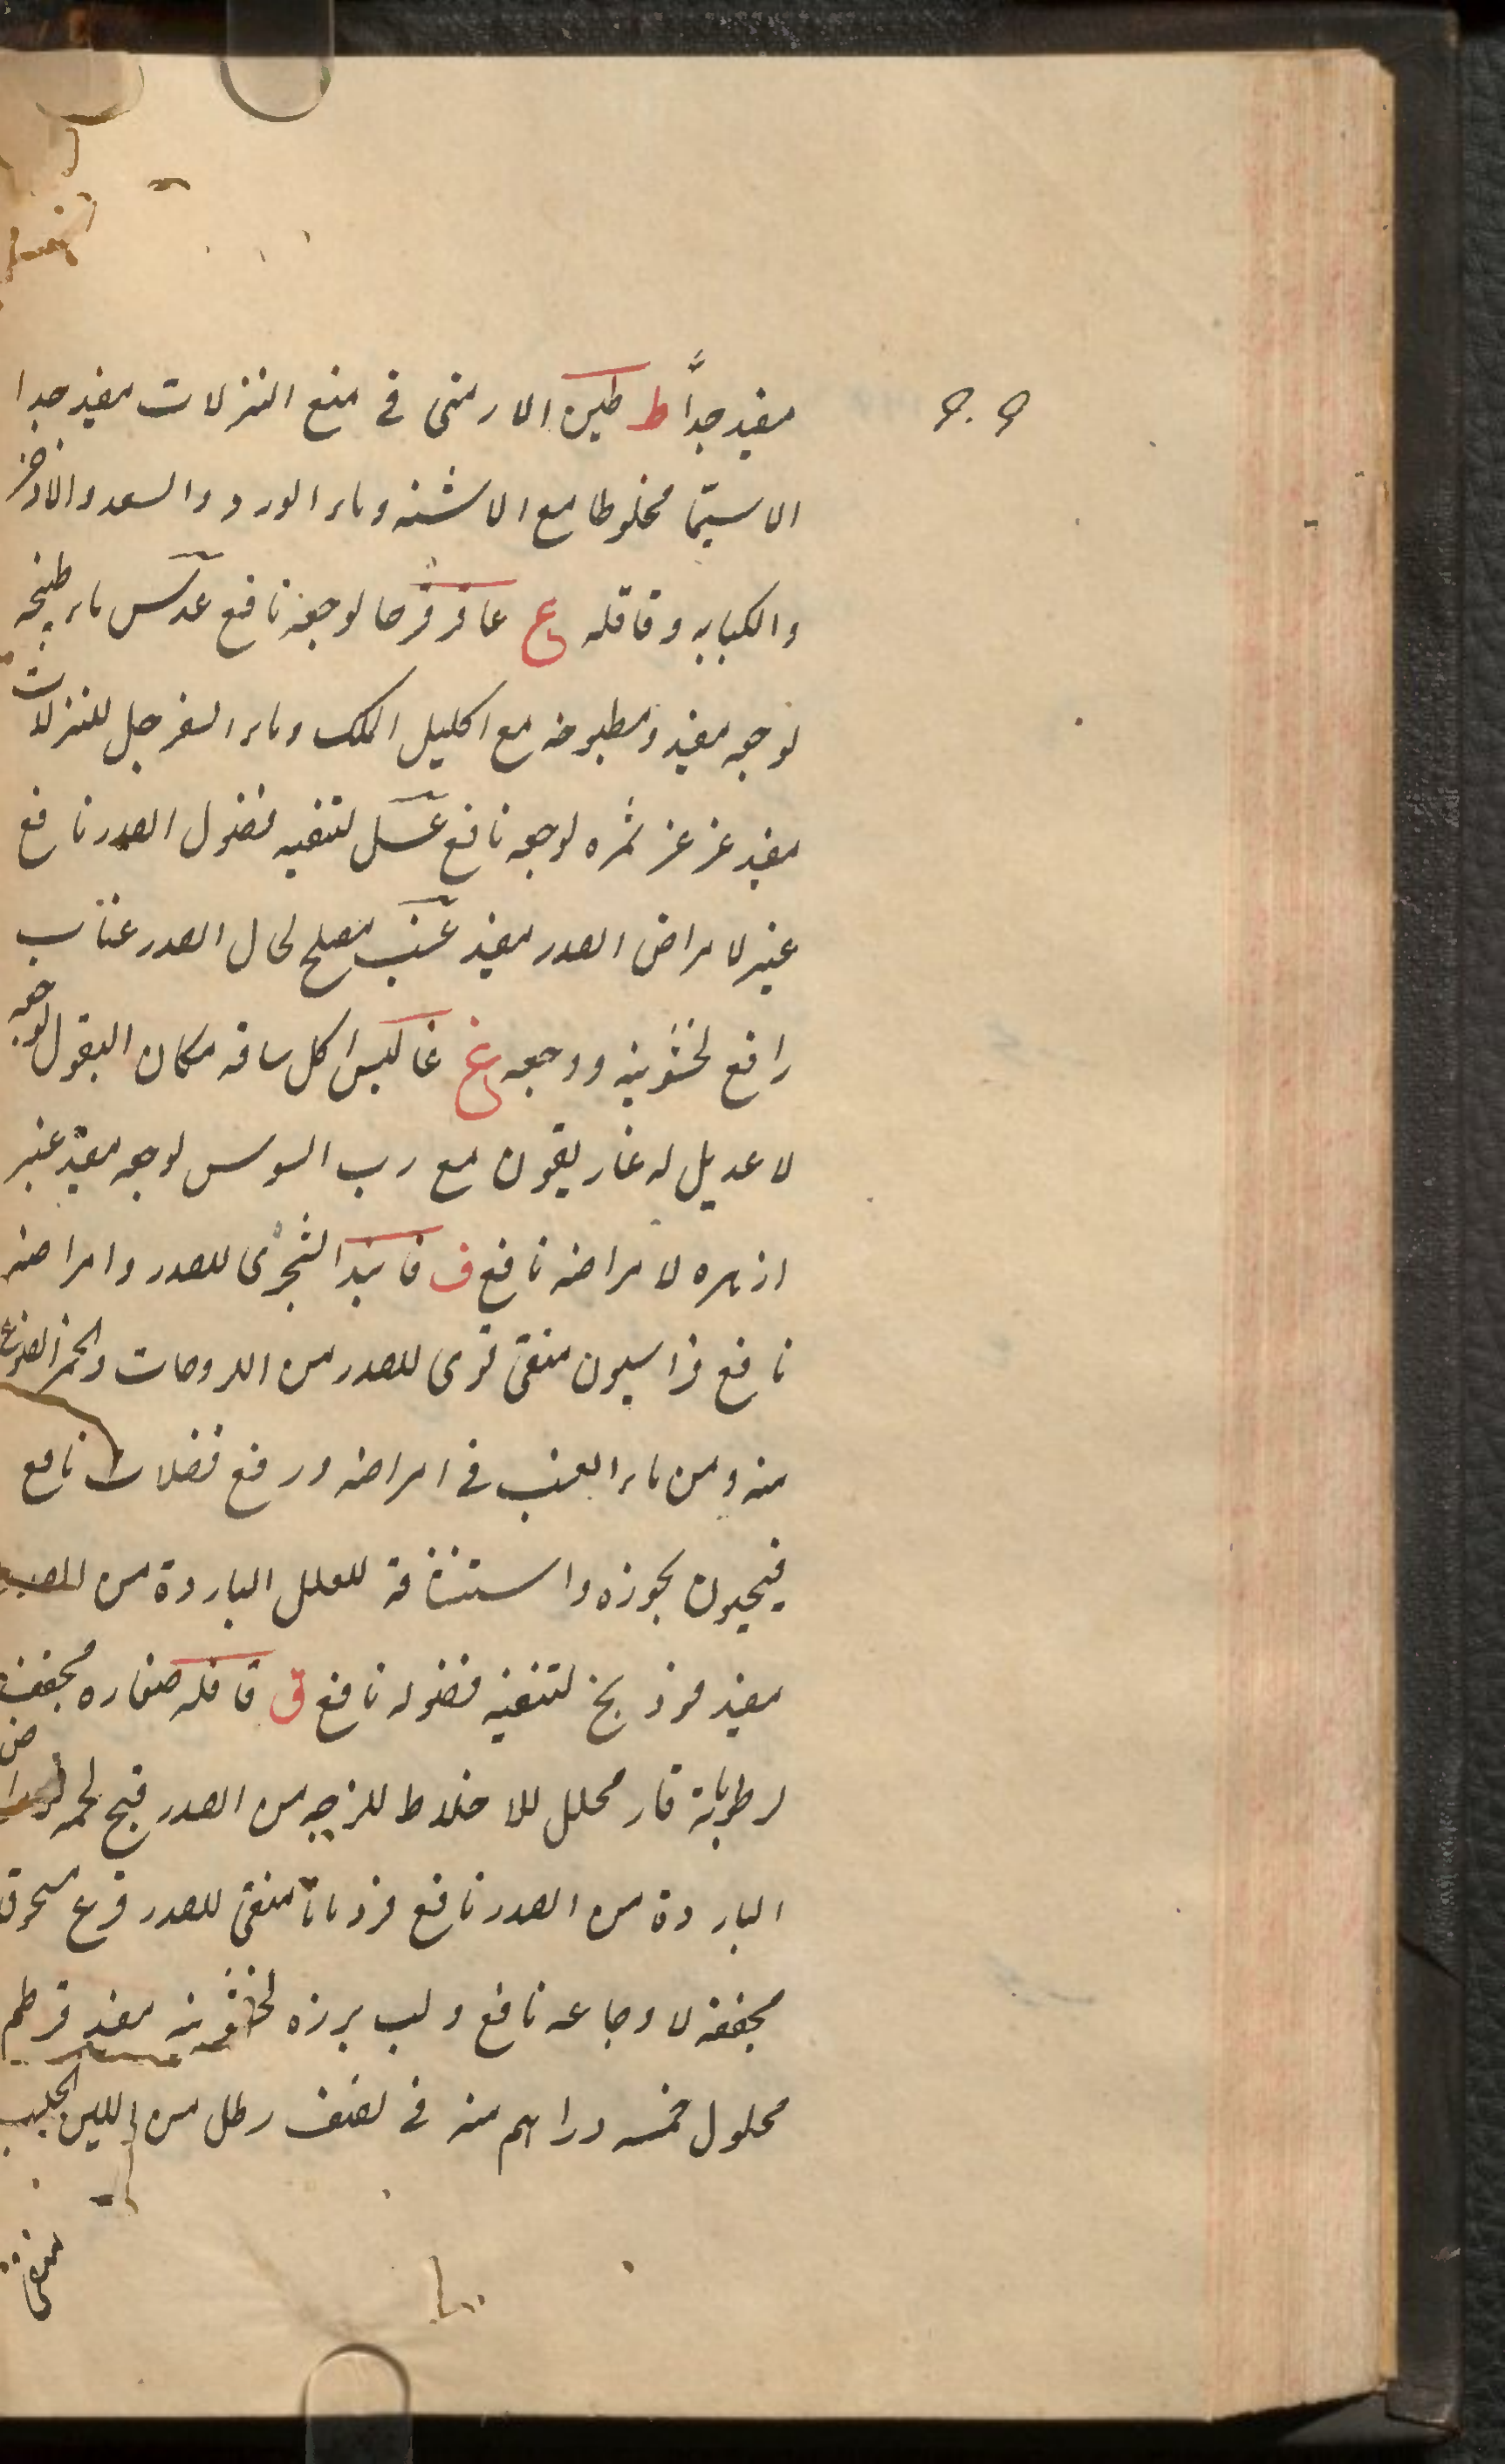 مفيد جداً ط طين الارمنى فى منع النزلات مفيد جدا
لا سيّما مخلوطا مع الاشنه وماء الورد والسعد والاذخر
والكبابه وقاقله ع عاقرقرحا لوجعه نافع عدس ماء طبخه
لوجعه مفيد ومطبوخه مع اكليل الملك وماء السفرجل للنزلات
مفيد عزعز ثمره لوجعه نافع عسل لتنقيه فضول الصدر نافع
عنبر لامراض الصدر مفيد عنب مصلح لحال الصدر عناب
رافع لخشونته ووجعه غ غاليس اكل ساقه مكان البقول لوجعه
لا عديل له غاريقون مع رب السوس لوجعه مفيد غبر
ازهره لامراضه نافع ف فانيد الشجرى للصدر وامراضه
نافع فراسيون منقى قوى للصدر من اللزوجات والخمر المصنوع
منه ومن ماء العنب فى امراضه ورفع فضلات نافع
فيجيون بخوره واستنشاقه للعلل الباردة من الصدر
مفيد فوذنج لتنقيه فضوله نافع ق قاقله صغاره مجفف
لرطوباته قار محلل للاخلاط للزجه من الصدر قبج لحمه لامراض
الباردة من الصدر نافع قردمانا منقى للصدر قرع مسحوق
مجففه لاوجاعه نافع ولب برزه لخشونته مفيد قرطم
محلول خمسه دراهم منه فى نصف رطل من اللبن الحليب
منقى